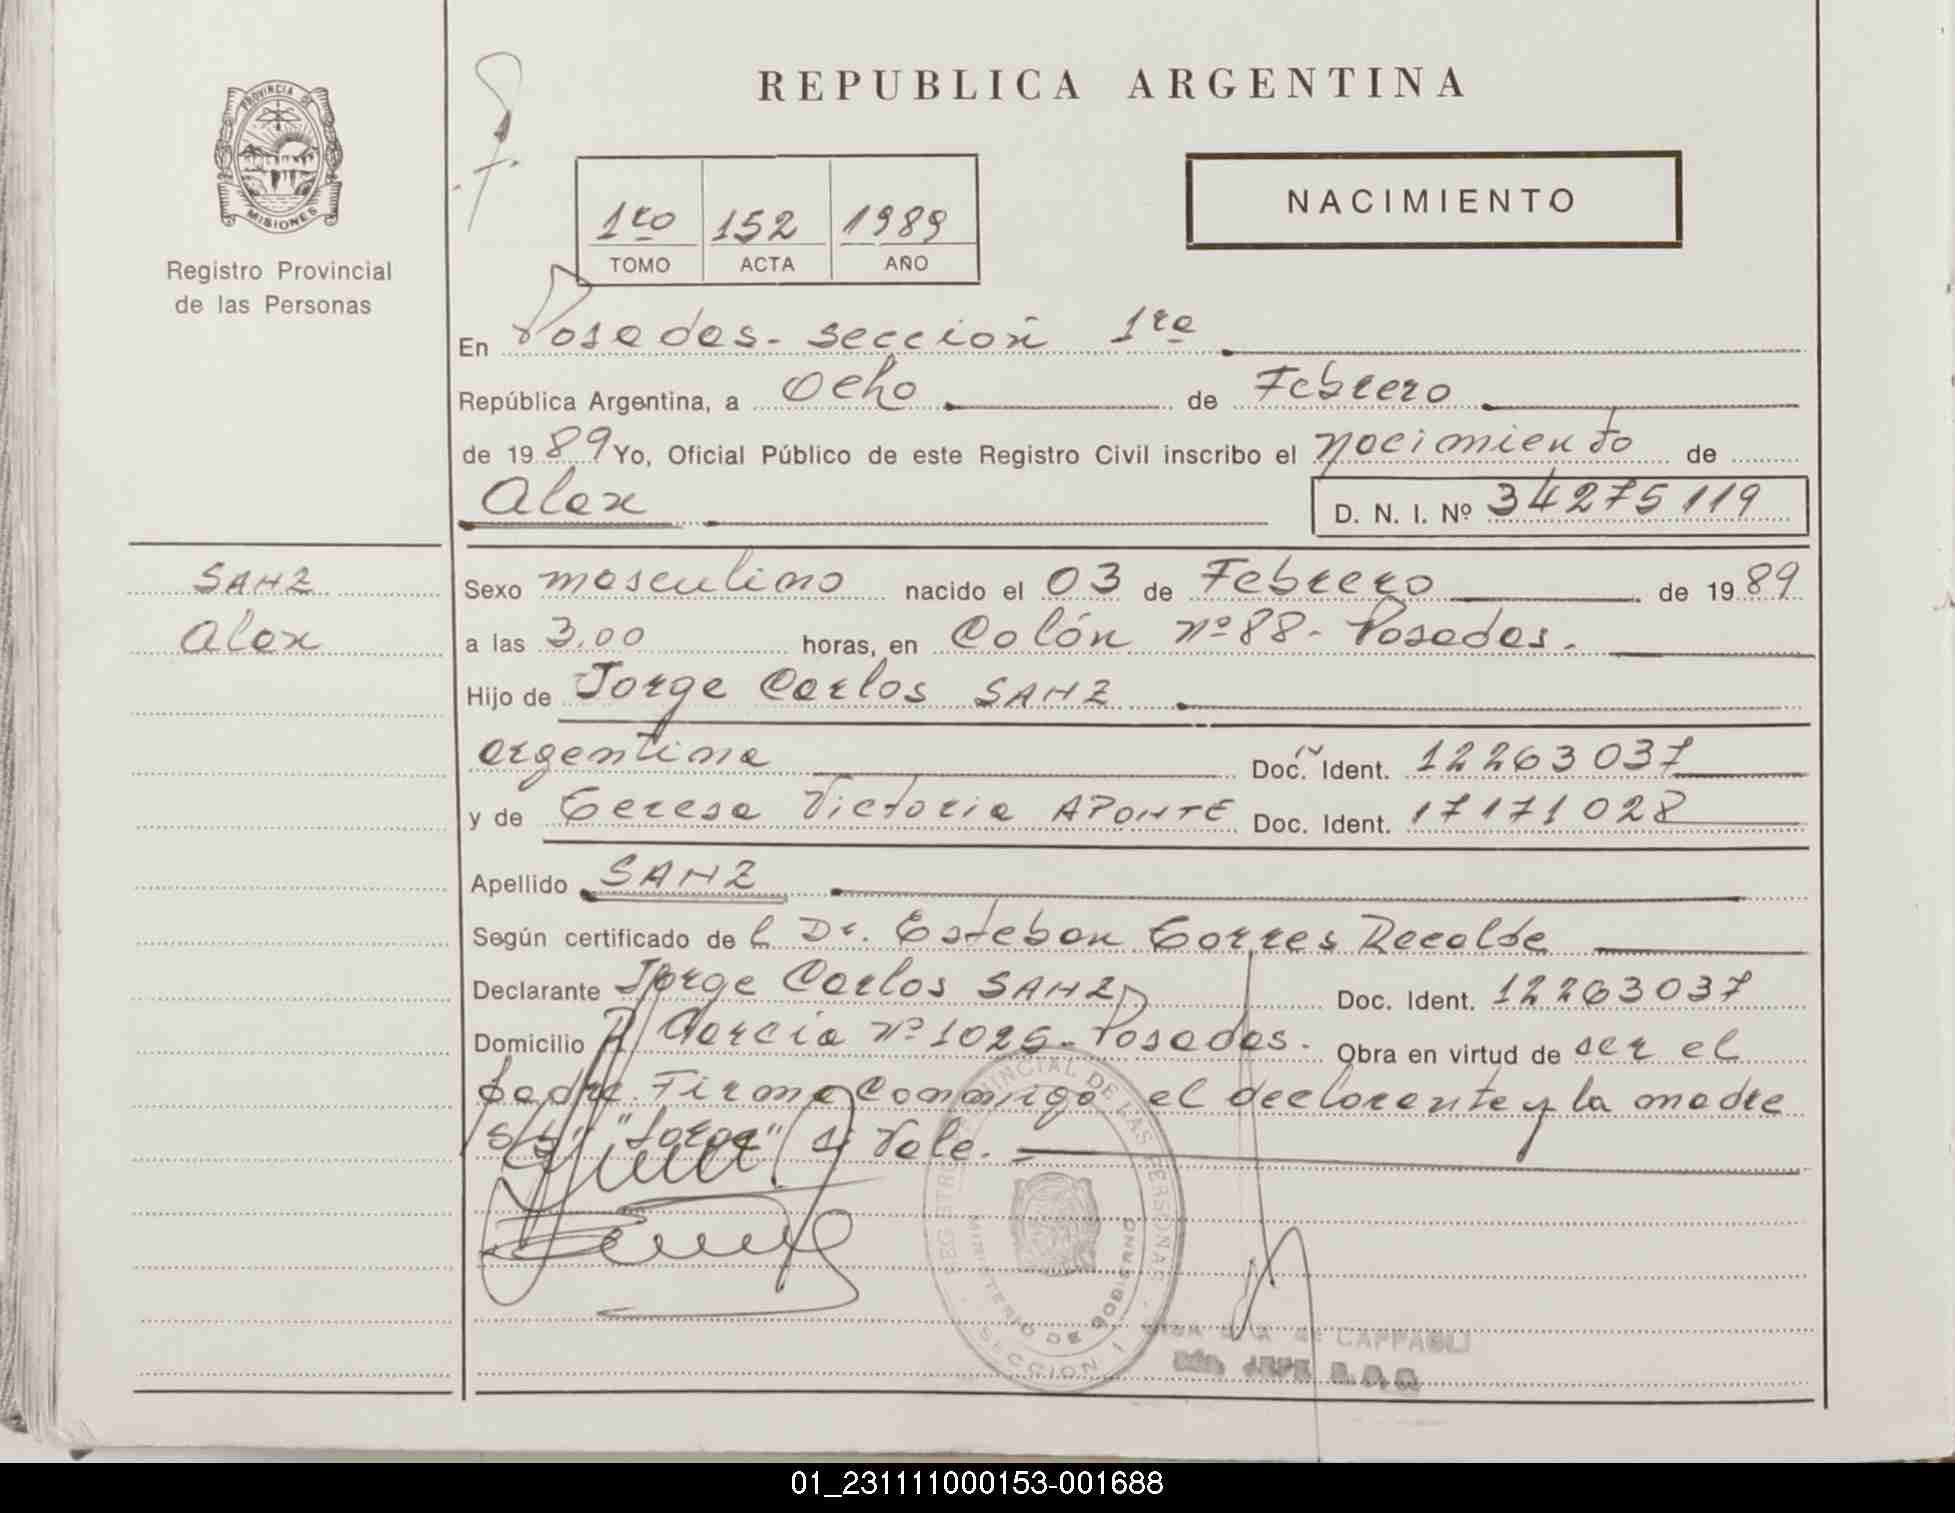 REPUBLICA ARGENTINA
PROVINCIA DE
MISIONES
Registro Provincial
de las Personas
1ro 152 1989
TOMO ACTA AÑO
NACIMIENTO
En Posadas - sección 1ra
República Argentina, a Ocho de Febrero
de 1989 Yo, Oficial Público de este Registro Civil inscribo el nacimiento de
Alex D. N. I. Nº 34275119
SANZ
Alex
Sexo masculino nacido el 03 de Febrero de 1989
a las 3,00 horas, en Colón nº 88 - Posadas.
Hijo de Jorge Carlos SANZ
argentina Doc. Ident. 12263037
y de Teresa Victoria APONTE Doc. Ident. 17171028
Apellido SANZ
Según certificado de l Dr. Esteban Torres Recalde
Declarante Jorge Carlos SANZ Doc. Ident. 12263037
Domicilio García Nº 1025 - Posadas. Obra en virtud de ser el
padre. Firma conmigo el declarante y la madre
"Jorge" Vale.
REGISTRO PROVINCIAL DE LAS PERSONAS
MINISTERIO DE GOBIERNO
SECCION 1
de CAPPAGLI
JEFE
01_231111000153-001688